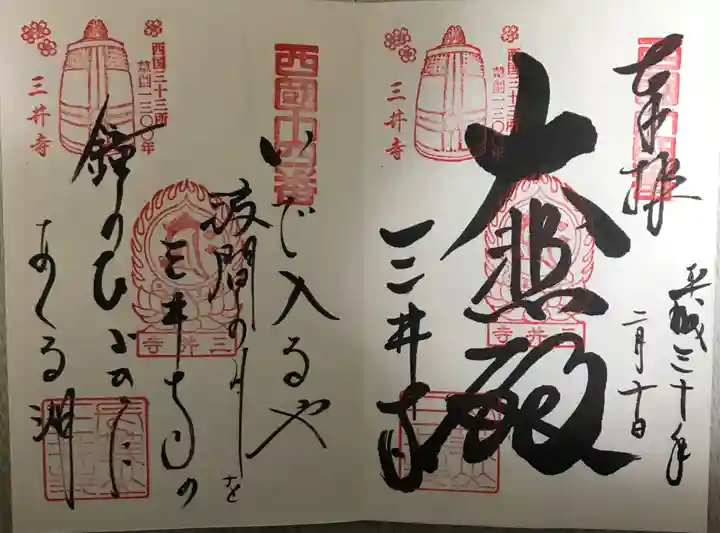 奉拝
西国十四番
平成三十年
二月十日
大悲殿
三井寺
三井寺
西国三十三所
草創一三〇〇年
三井寺
西国十四番
いで入るや
波間の月を
三井寺の
鐘のひびきに
あくる湖
三井寺
西国三十三所
草創一三〇〇年
三井寺